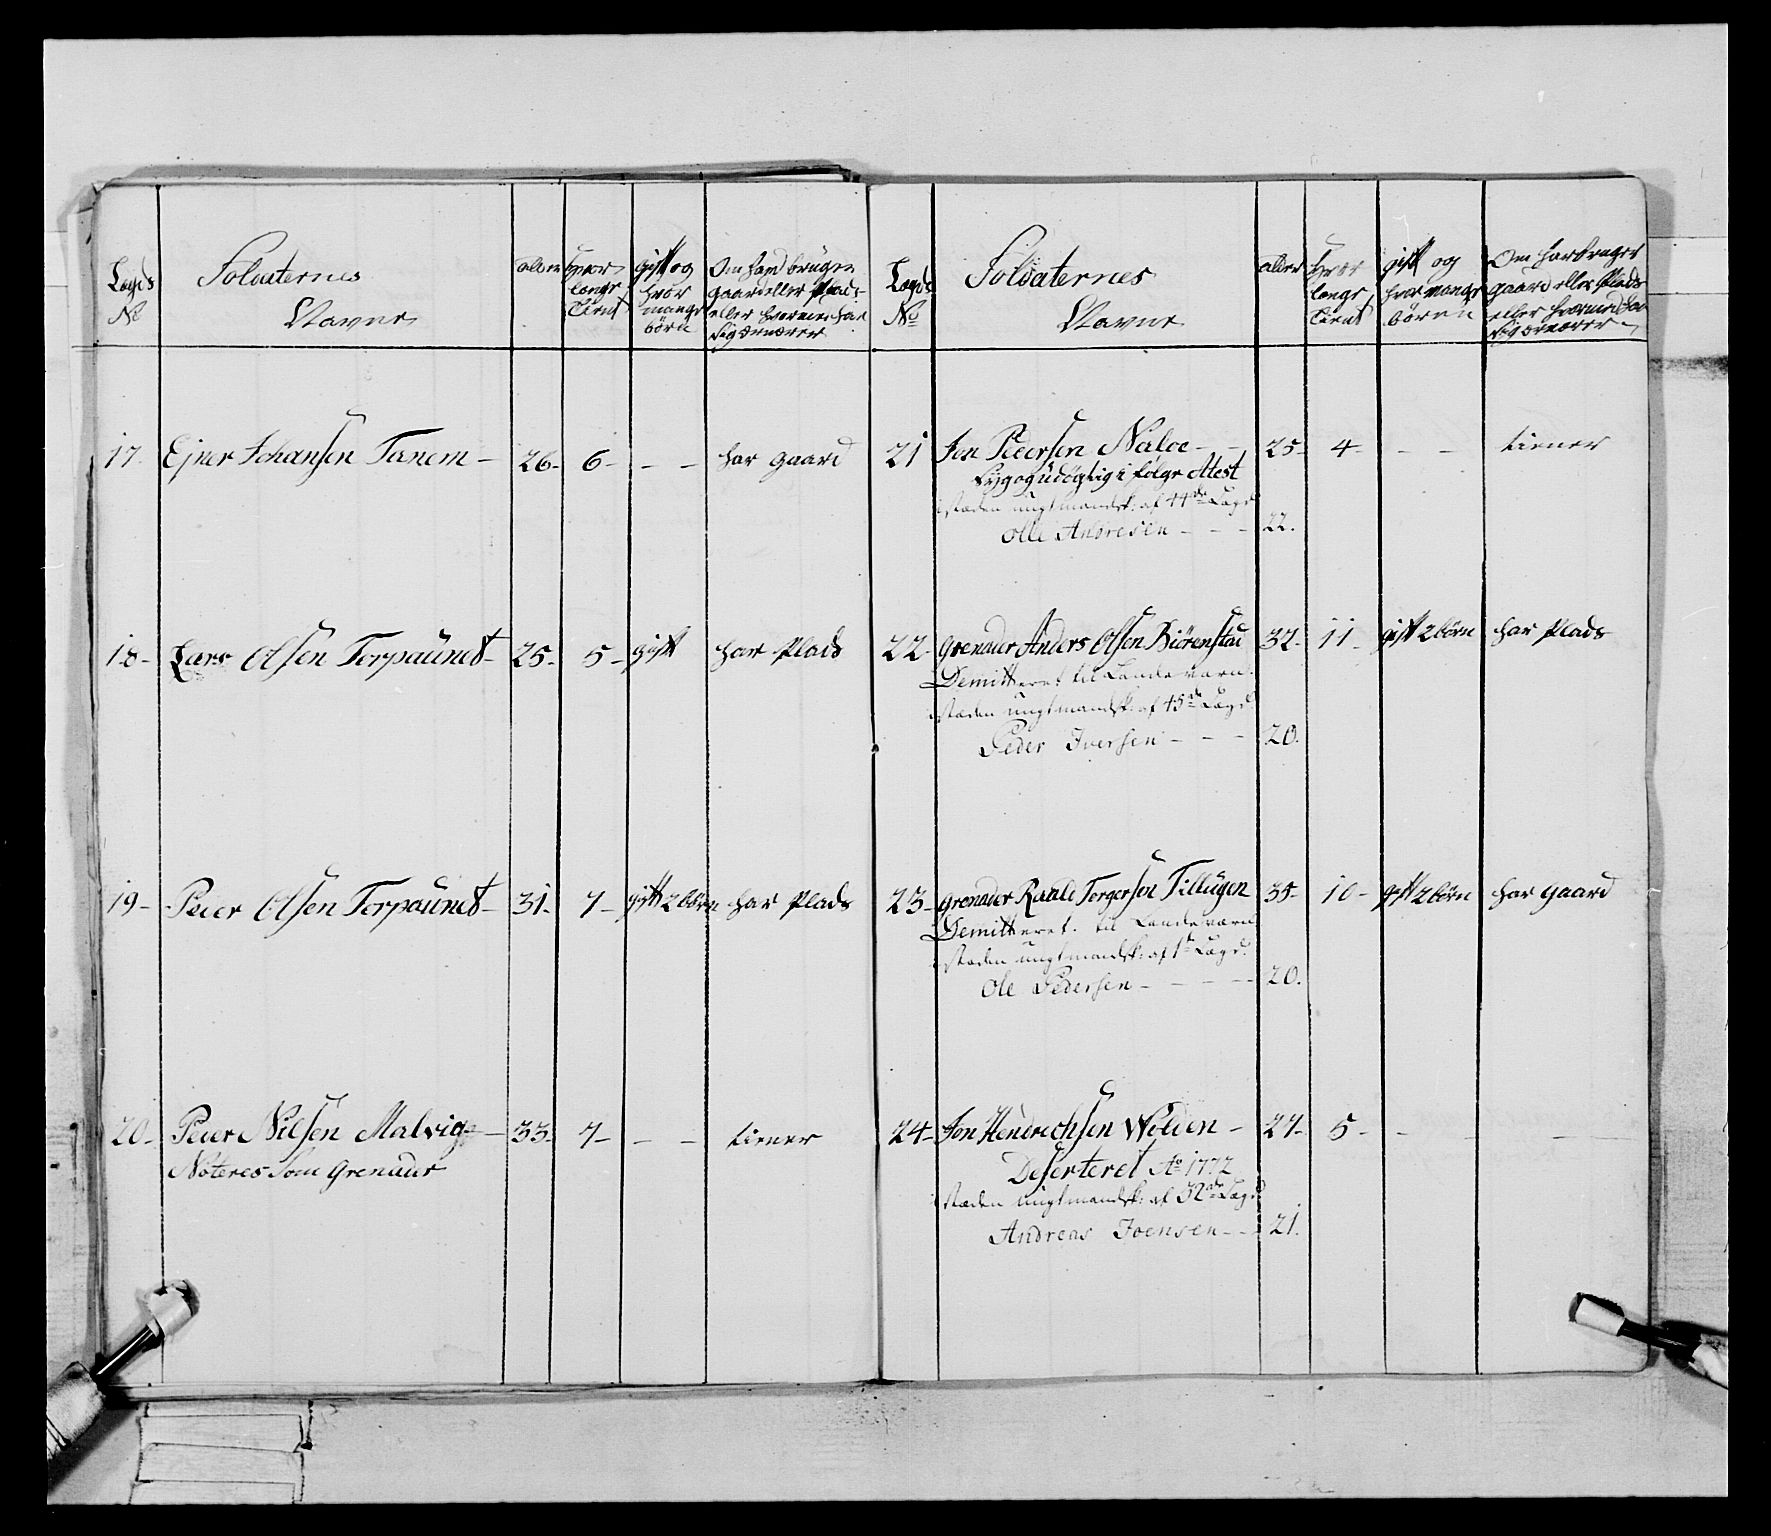 Lægds No | Soldaternes Navne | alder | hvor længe tient | gift og hvor mange börn | Om hand bruger gaard eller Plads eller hvormed han sig ernærer
17. Ejner Johansen Tanem - 26. 6 - - - har gaard
18 - Lars Olsen Torpaunet - 25. 5 - gift har Plads
19 - Peder Olsen Torpaunet - 31. 7 - gift 2 börn har Plads
20 - Peder Nilsen Malvig - 33. 7 - - - tiener
Noteres som Grenader
Lægds No | Soldaternes Navne | alder | hvor længe tient | gift og hvor mange börn | Om han bruger gaard eller Plads eller hvormed han sig ernærer
21 Jon Pedersen - - 25. 4 - - - tiener
Syg og udögtig i fölge Atest
istæden ungtmandsk: af 44de Lægd
Olle Andresen - - - 22.
22 - Grenader Anders Olsen Biörenstad 32. 11 - gift 2 börn har Plads
Demitteret til Landeværn
istæden ungtmandsk: af 45de Lægd.
Peder Iversen - - - 20.
23 - Grenader Torgersen Tillugen 35 - 10 - gift 2 börn har gaard
Demitteret til Landeværn
istæden ungtmandsk: af 1te Lægd.
Ole Pedersen - - - - 20.
24 - Jon Hendrichsen Wolden - 27. 5 - - -
Deserteret Ao 1772
istæden ungtmandsk: af 32de Lægd
Andreas Joensen - - 21.